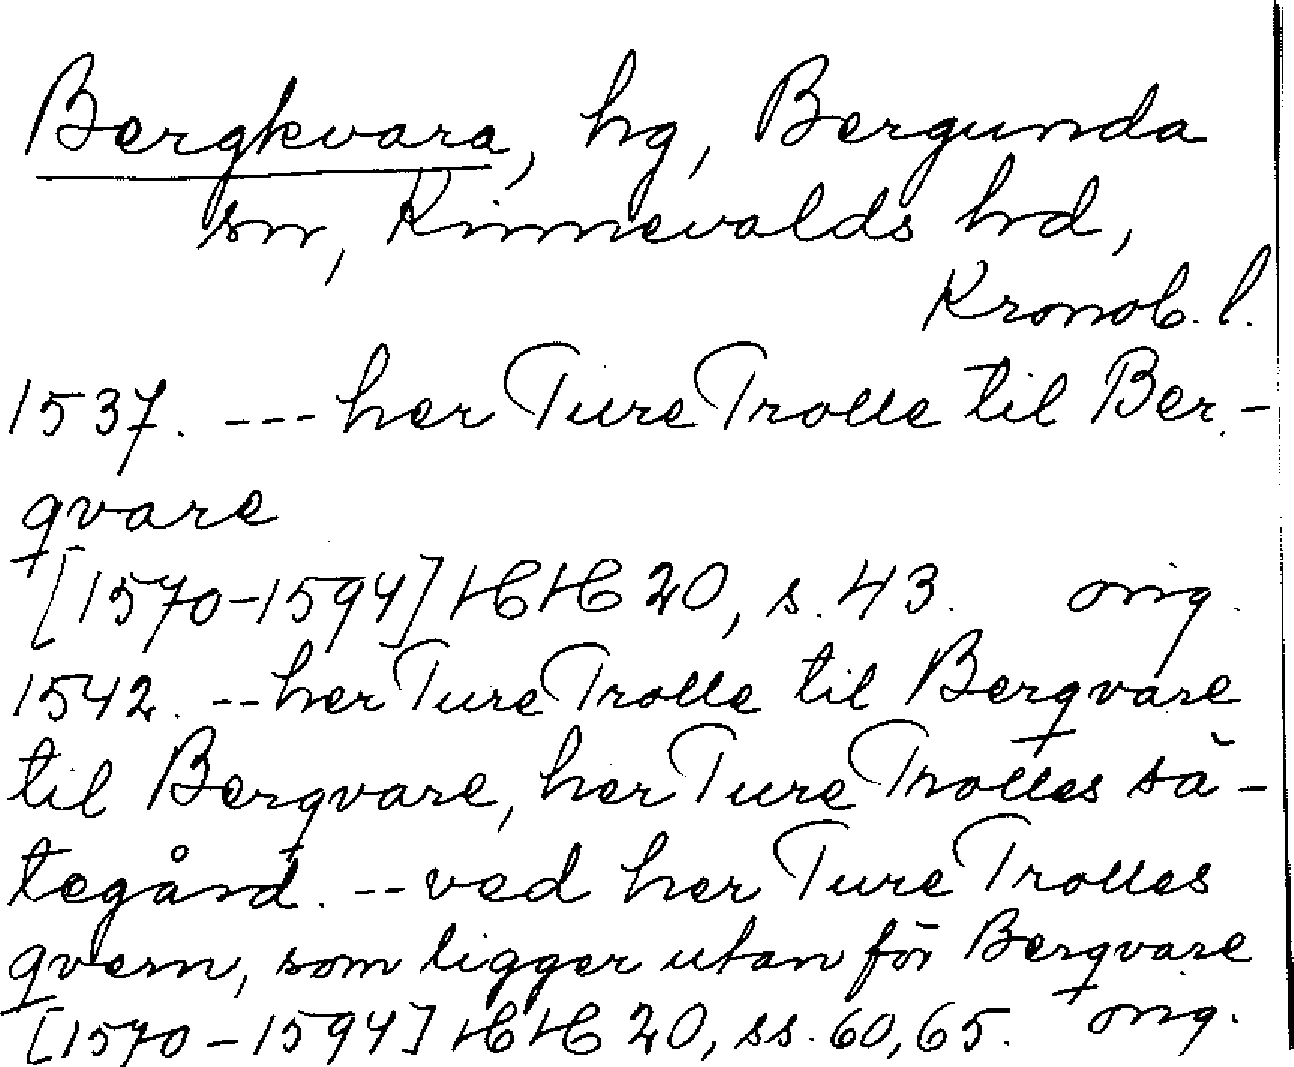 Bergkvara, hg, Bergunda
sn, Kinnevalds hd,
Kronob. l.
1537. --- her Ture Trolle til Ber-
qvare
[1570-1594] HH 20, s. 43. orig.
1542. -- her Ture Trolle til Berqvare
til Berqvare, her Ture Trolles sä-
tegård. -- ved her Ture Trolles
qvern, som ligger utan för Berqvare
[1570-1594] HH 20, ss. 60, 65. orig.